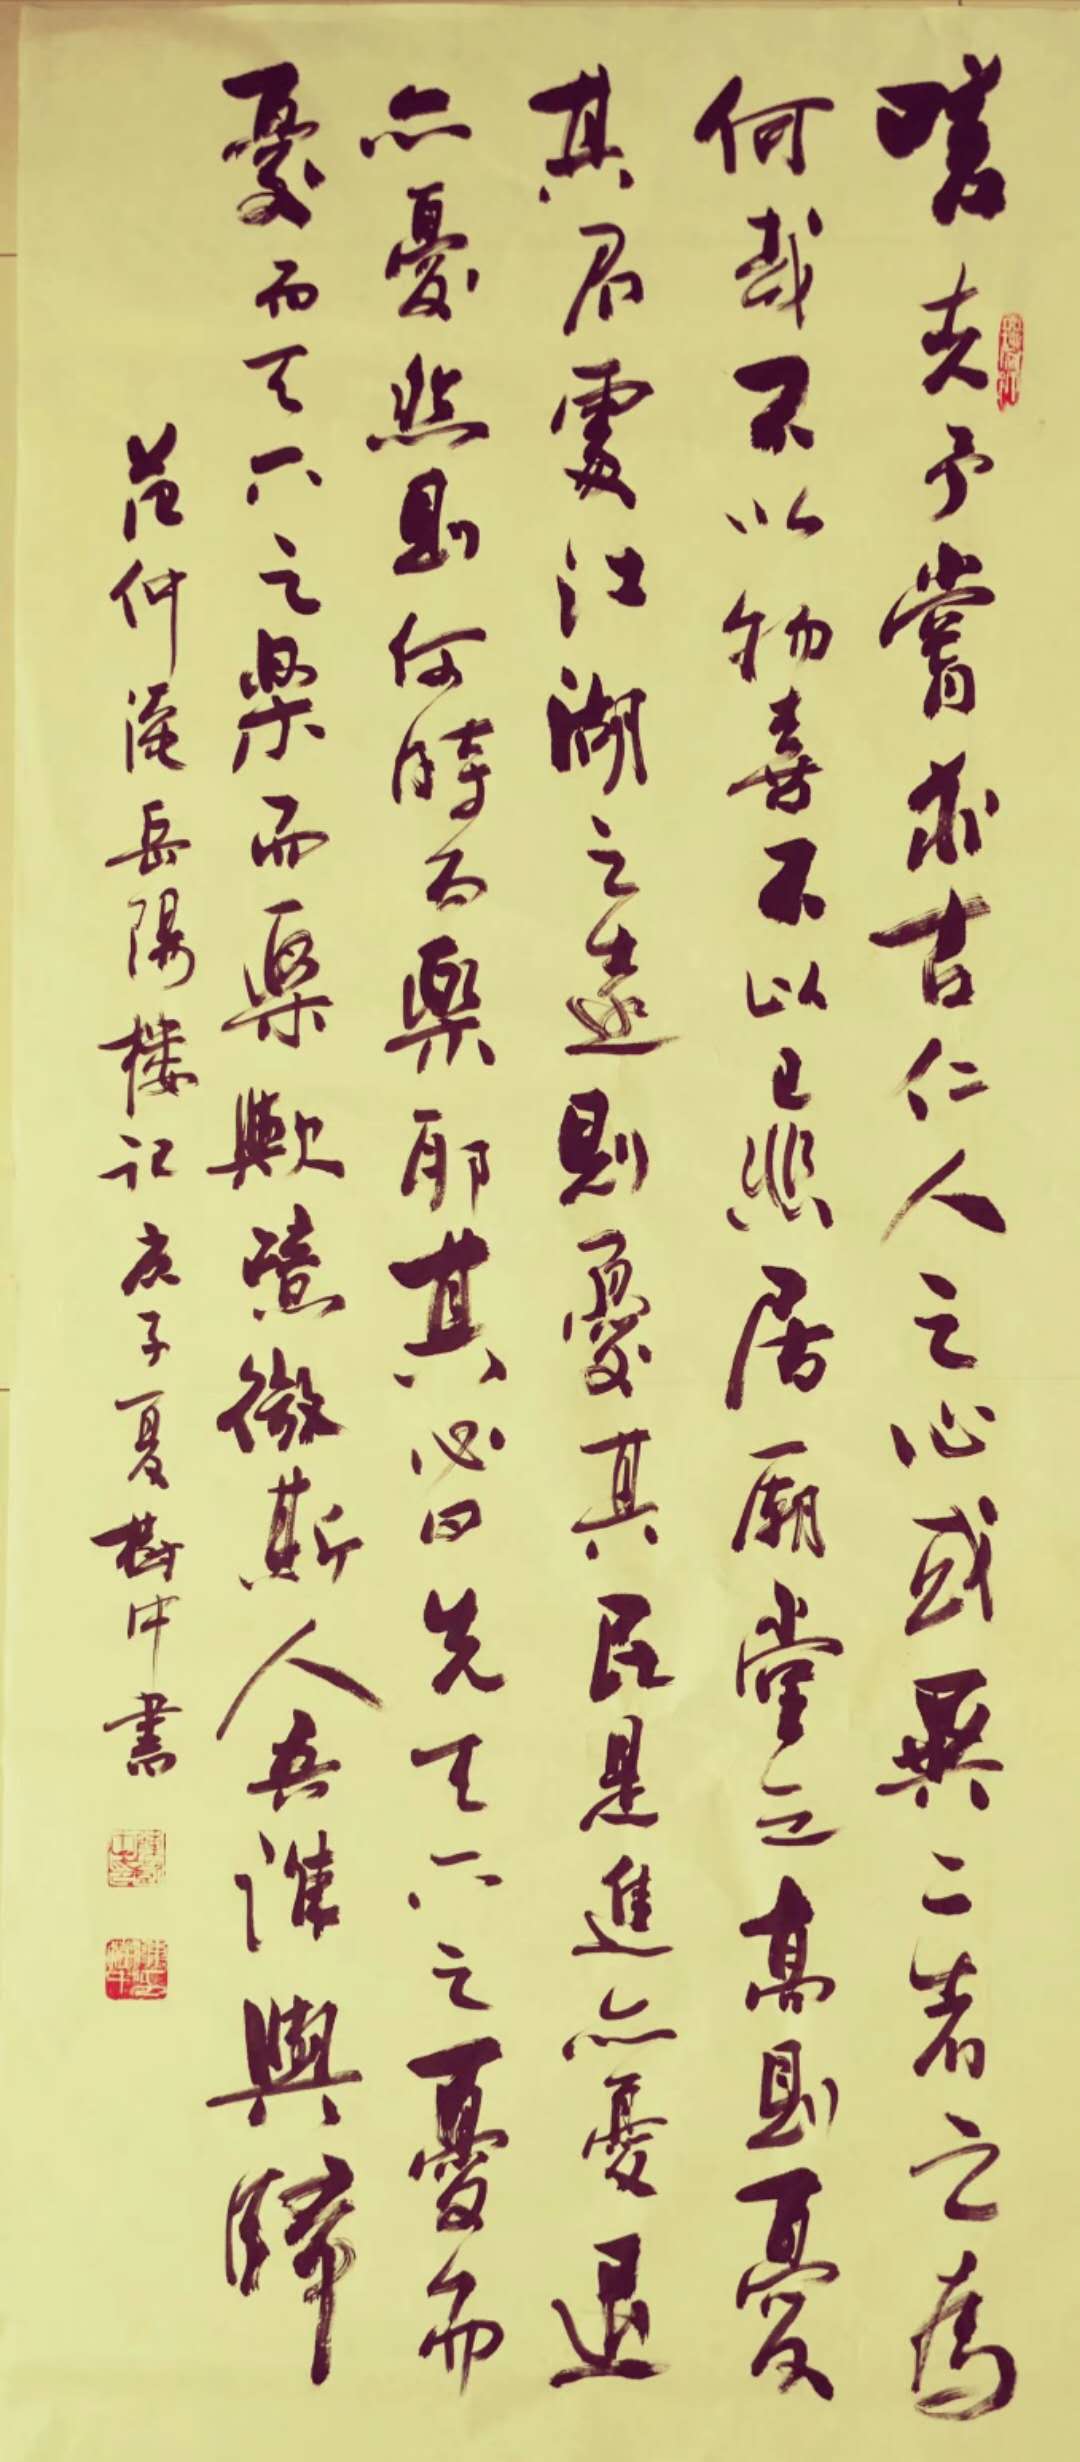 嗟夫予嘗求古仁人之心或異二者之為
何哉不以物喜不以己悲居廟堂之高則憂
其君處江湖之遠則憂其民是進亦憂退
亦憂然則何時而樂耶其必曰先天下之憂而
憂而天下之樂而樂歟噫微斯人吾誰與歸
范仲淹岳陽樓記庚子夏中書